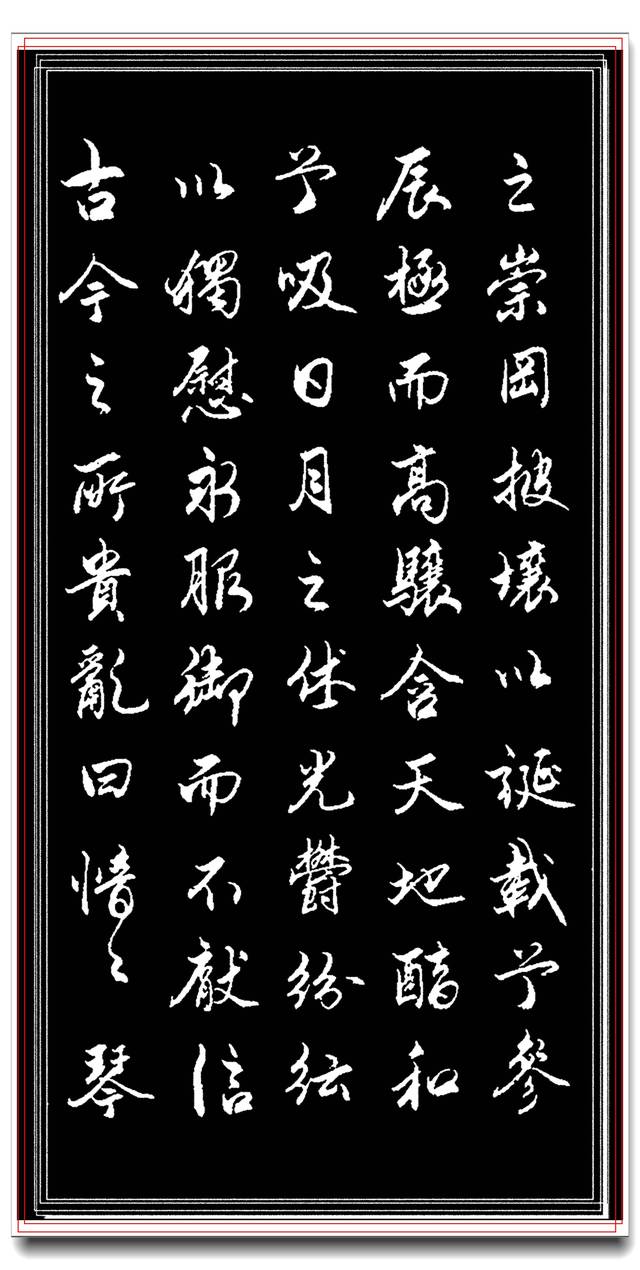 之崇岡披壤以誕載兮參
辰極而高驤含天地醕和
兮吸日月之休光鬱紛紜
以獨慰永服御而不厭信
古今之所貴亂曰愔々琴